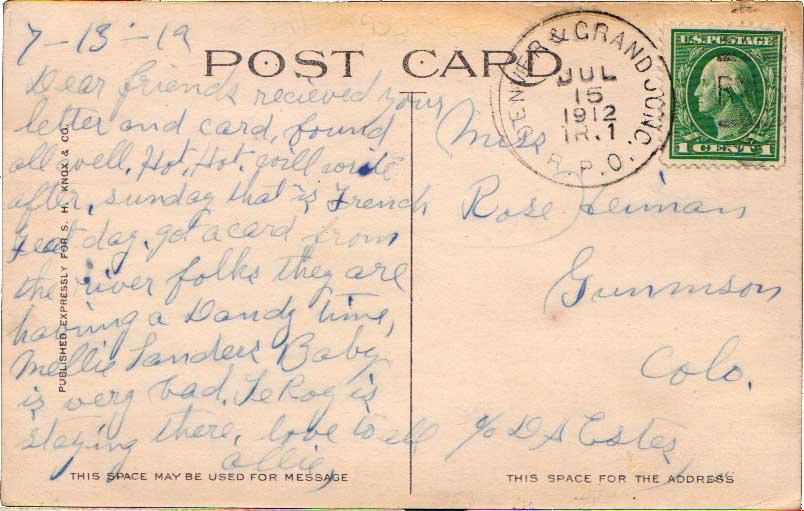 7-13-19
POST CARD
Dear friends recieved your
letter and card, found
all well. Hot, Hot. will write
after, sunday that is French
Feast day. got a card from
the river folks they are
having a Dandy time,
Mellie Sanders Baby
is very bad. LeRoy is
staying there, love to all
Ollie,
THIS SPACE MAY BE USED FOR MESSAGE
PUBLISHED EXPRESSLY FOR S. H. KNOX & CO.
DENVER & GRAND JUNC.
JUL
15
1912
TR.1
R.P.O.
U.S. POSTAGE
1 CENT 1
Miss
Rose Heiman
Gunnison
Colo.
c/o D A Estes
THIS SPACE FOR THE ADDRESS